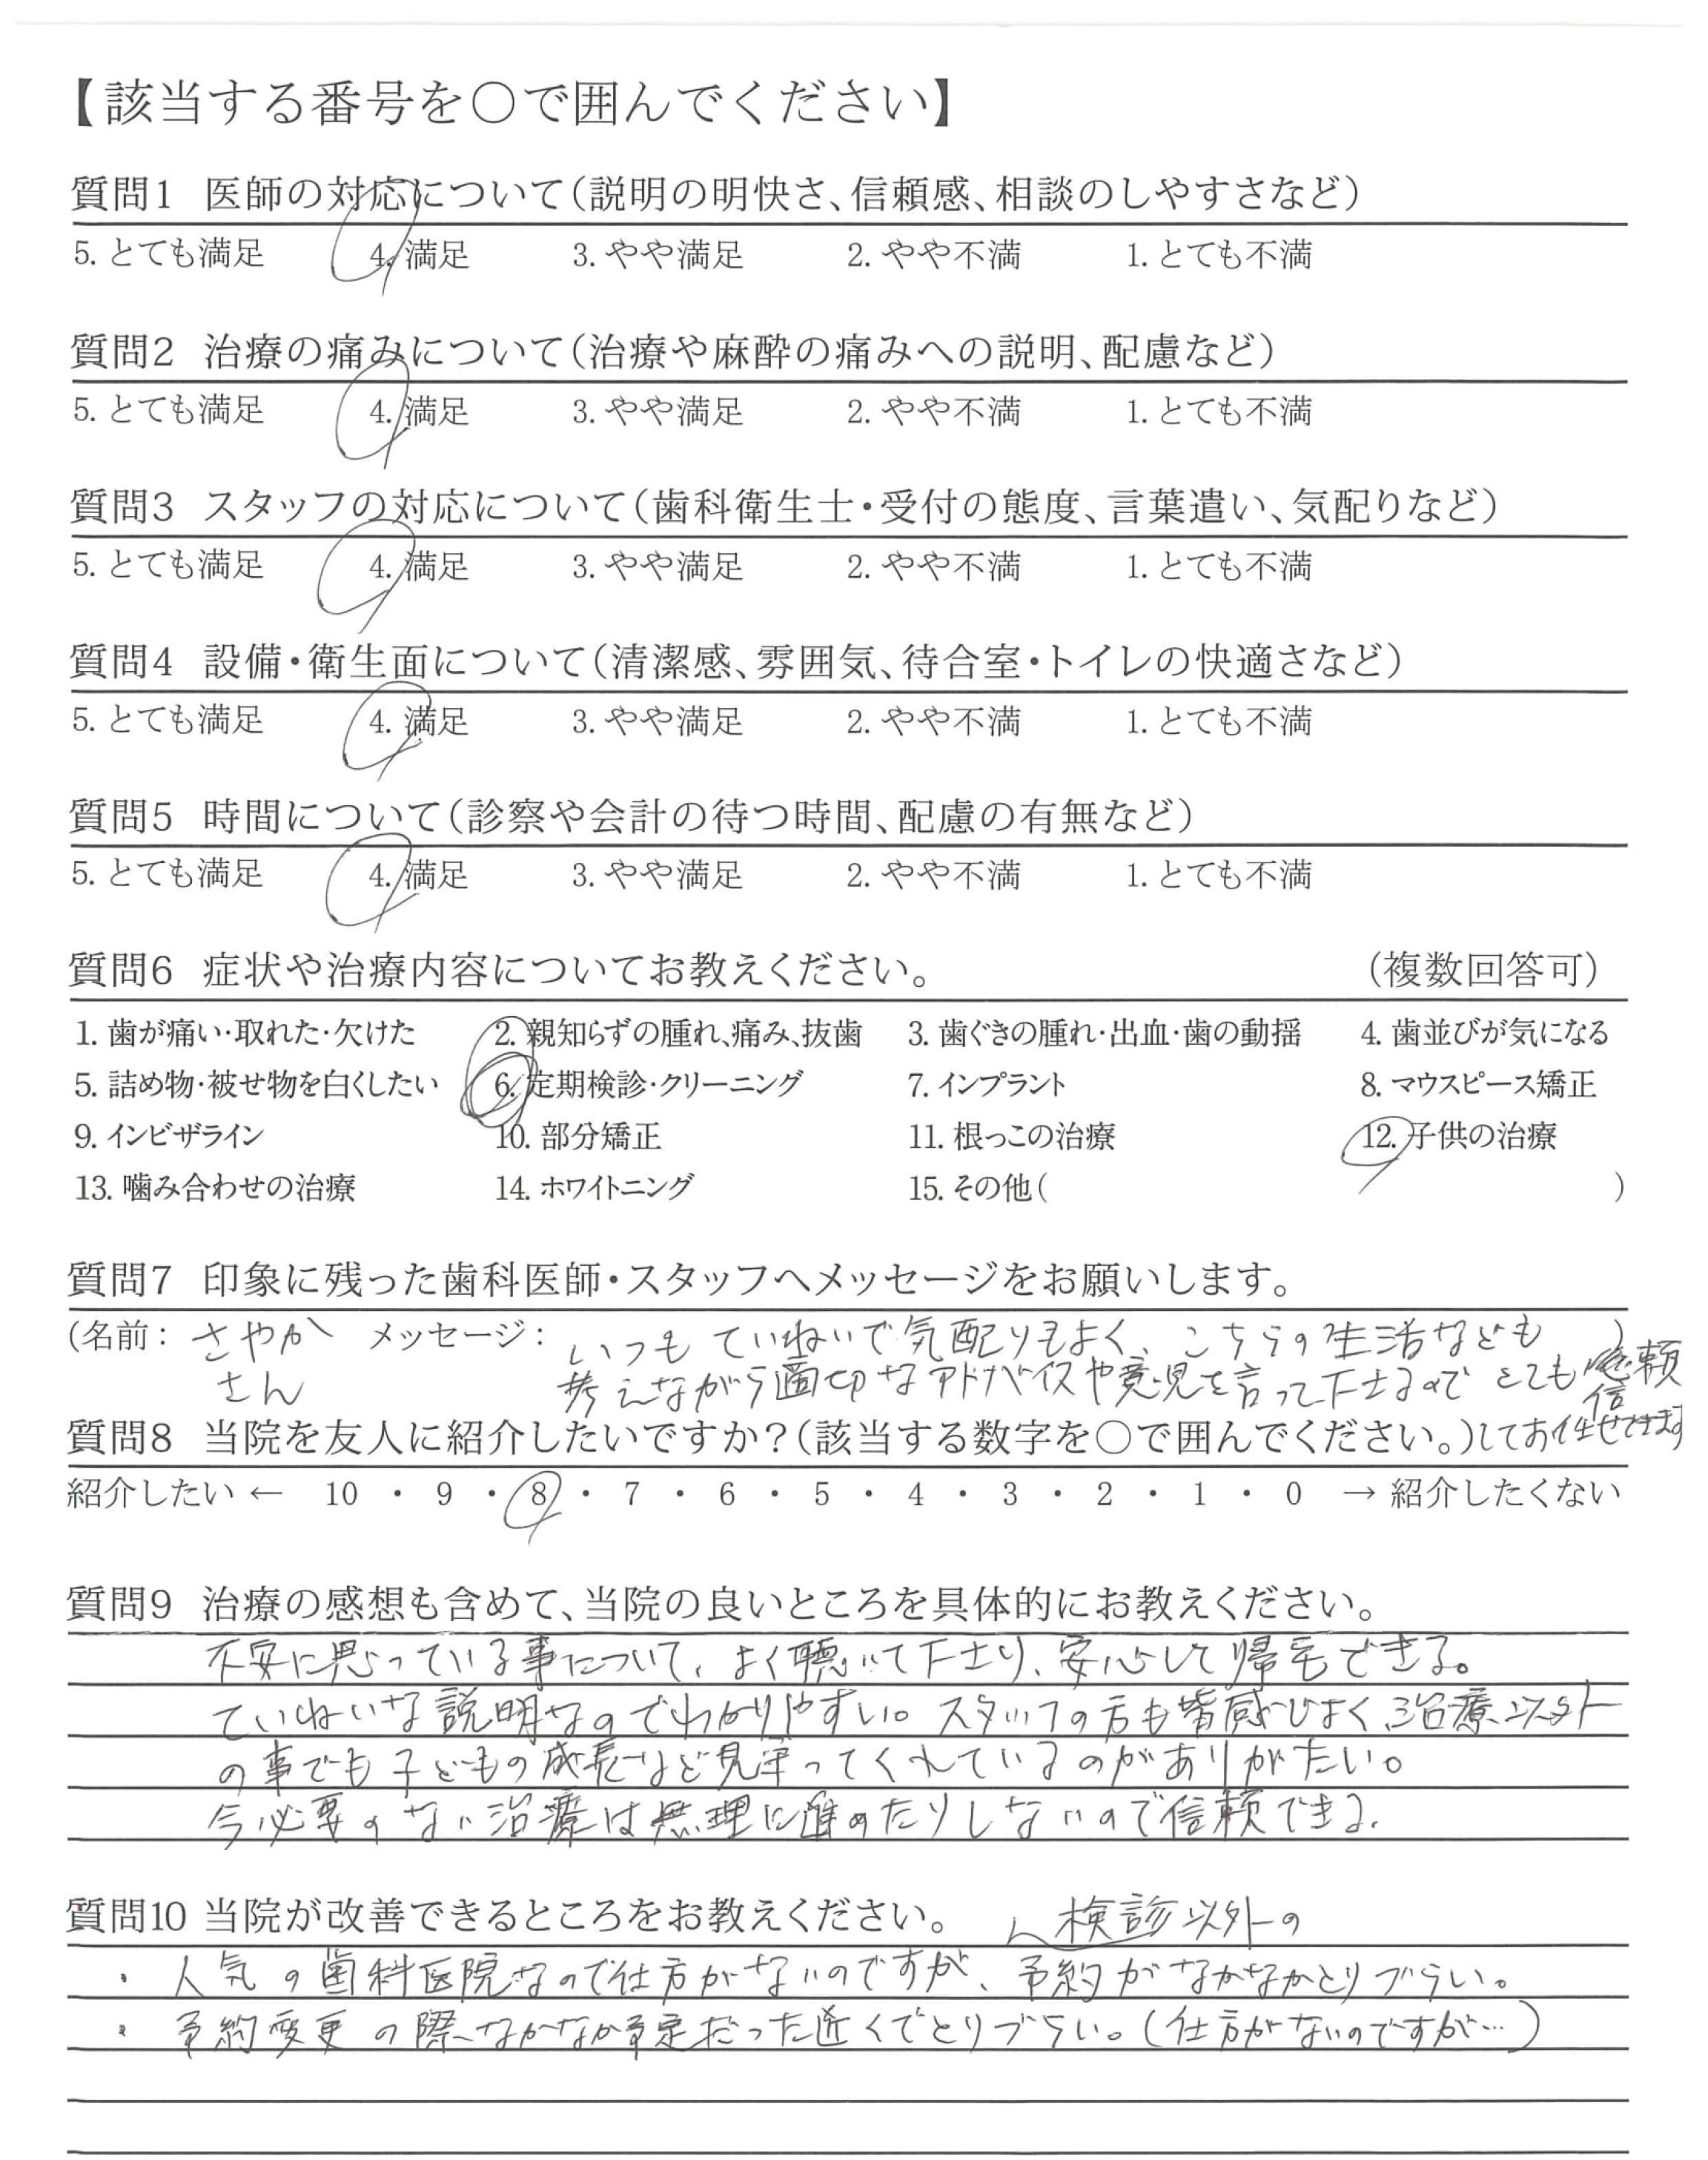 【該当する番号を○で囲んでください】
質問1 医師の対応について(説明の明快さ、信頼感、相談のしやすさなど)
5. とても満足 4. 満足 3. やや満足 2. やや不満 1. とても不満
質問2 治療の痛みについて(治療や麻酔の痛みへの説明、配慮など)
5. とても満足 4. 満足 3. やや満足 2. やや不満 1. とても不満
質問3 スタッフの対応について(歯科衛生士・受付の態度、言葉遣い、気配りなど)
5. とても満足 4. 満足 3. やや満足 2. やや不満 1. とても不満
質問4 設備・衛生面について(清潔感、雰囲気、待合室・トイレの快適さなど)
5. とても満足 4. 満足 3. やや満足 2. やや不満 1. とても不満
質問5 時間について(診察や会計の待つ時間、配慮の有無など)
5. とても満足 4. 満足 3. やや満足 2. やや不満 1. とても不満
質問6 症状や治療内容についてお教えください。 (複数回答可)
1. 歯が痛い・取れた・欠けた 2. 親知らずの腫れ、痛み、抜歯 3. 歯ぐきの腫れ・出血・歯の動揺 4. 歯並びが気になる
5. 詰め物・被せ物を白くしたい 6. 定期検診・クリーニング 7. インプラント 8. マウスピース矯正
9. インビザライン 10. 部分矯正 11. 根っこの治療 12. 子供の治療
13. 噛み合わせの治療 14. ホワイトニング 15. その他( )
質問7 印象に残った歯科医師・スタッフへメッセージをお願いします。
(名前: さやか メッセージ: いつもていねいで気配りもよく、こちらの生活なども )
さん 考えながら適切なアドバイスや意見を言って下さるのでとても信頼
質問8 当院を友人に紹介したいですか?(該当する数字を○で囲んでください。)しておまかせできます
紹介したい ← 10 ・ 9 ・ 8 ・ 7 ・ 6 ・ 5 ・ 4 ・ 3 ・ 2 ・ 1 ・ 0 → 紹介したくない
質問9 治療の感想も含めて、当院の良いところを具体的にお教えください。
不安に思っている事について、よく聴いて下さり、安心して帰宅できる。
ていねいな説明なのでわかりやすい。スタッフの方も皆感じよく、治療以外
の事でも子どもの成長など見守ってくれているのがありがたい。
今必要のない治療は無理に進めたりしないので信頼できる。
質問10 当院が改善できるところをお教えください。 検診以外の
・人気の歯科医院なので仕方がないのですが、予約がなかなかとりづらい。
・予約変更の際、なかなか予定だった近くでとりづらい。(仕方がないのですが…)